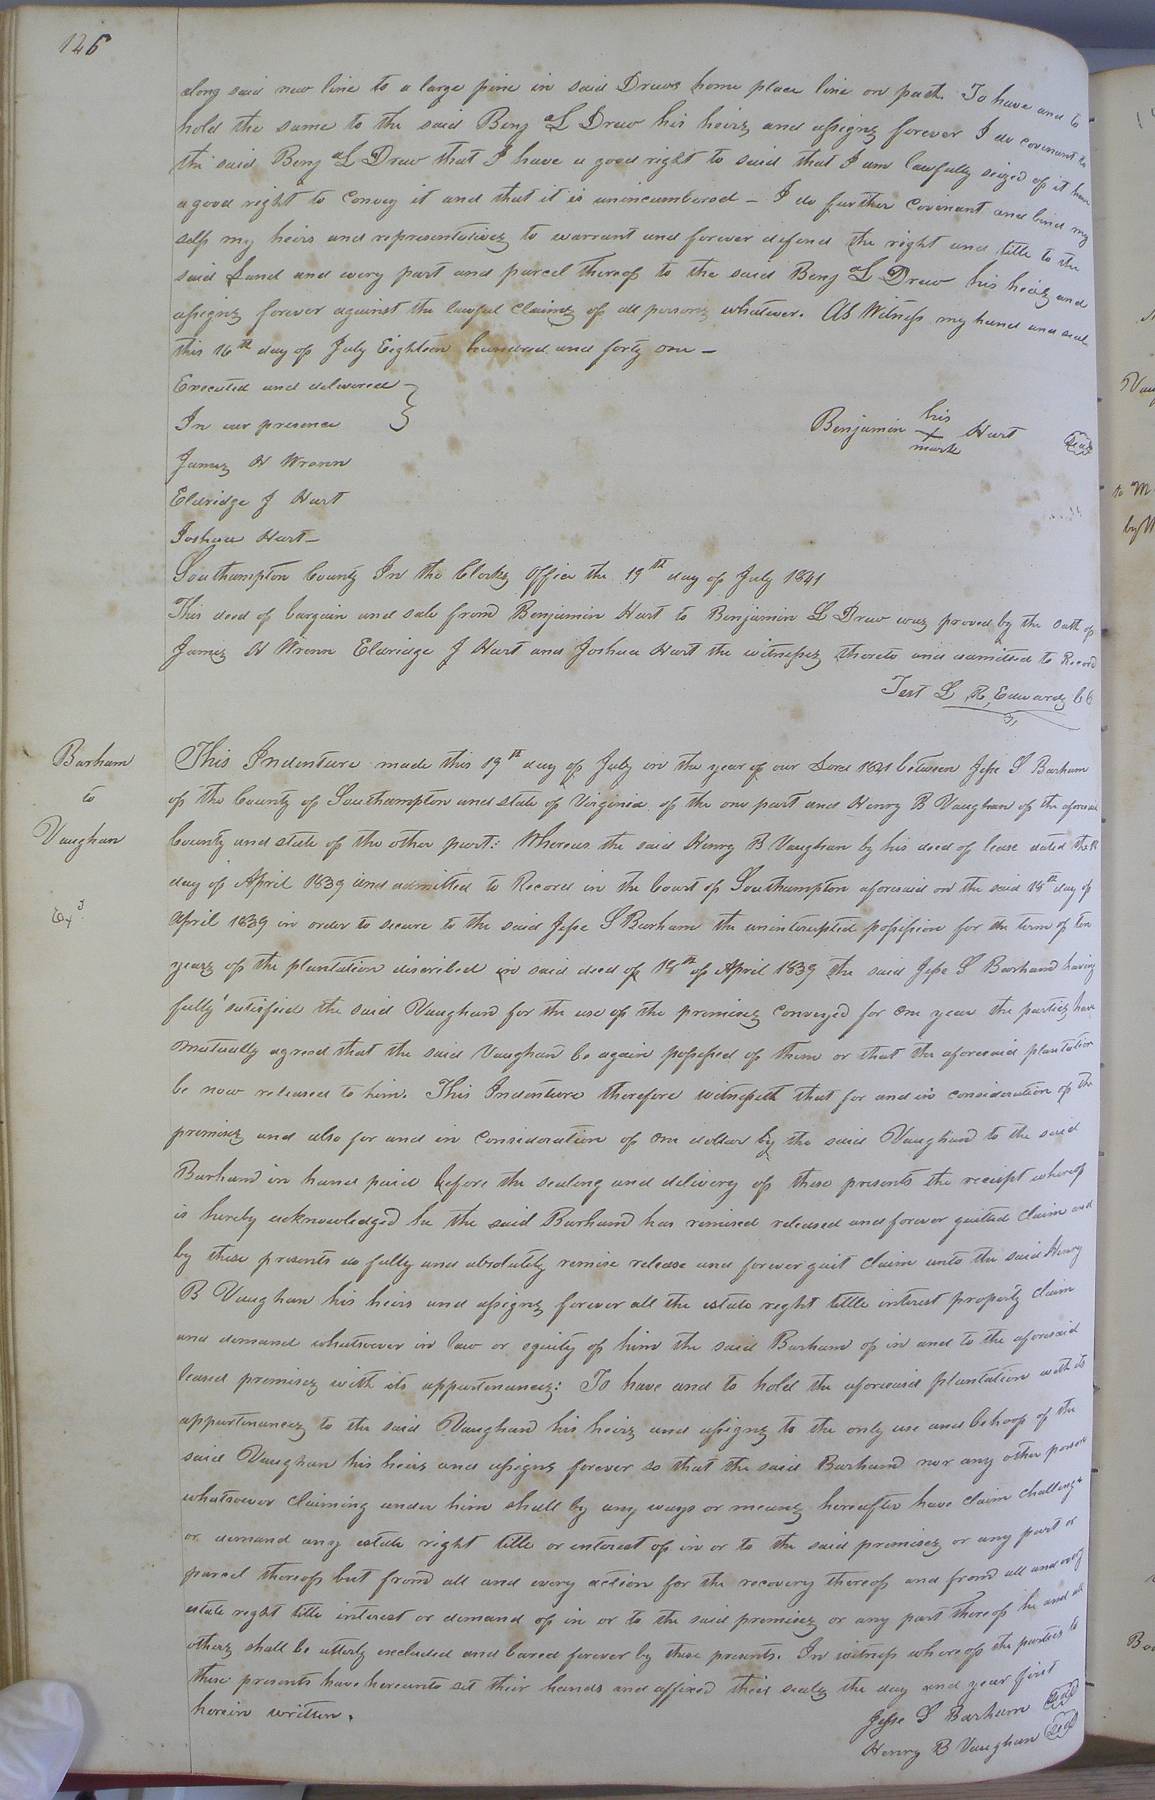 126
along said new line to a large pine in said Drews home place line on past. To have and to
hold the same to the said Benj L Drew his heirs and assigns forever I do covenant to
the said Benj L Drew that I have a good right to said that I am lawfully seized of it have
a good right to convey it and that it is unincumbered – I do further covenant and bind my
self my heirs and representatives to warrant and forever defend the right and title to the
said Land and every part and parcel thereof to the said Benj L Drew his heirs and
assigns forever against the lawful claims of all persons whatever. As Witness my hand and seal
this 16th day of July Eighteen hundred and forty one –
Executed and delivered
In our presence
Benjamin his X mark Hart Seal
James H Wrenn
Elaridge J Hart
Joshua Hart –
Southampton County In the Clerks Office the 19th day of July 1841
This deed of bargain and sale from Benjamin Hart to Benjamin L Drew was proved by the oath of
James H Wrenn Elaridge J Hart and Joshua Hart the witnesses thereto and admitted to Record
Test L R Edwards CC
Barham
to
Vaughan
Exd
This Indenture made this 19th day of July in the year of our Lord 1841 between Jesse S Barham
of the County of Southampton and state of Virginia of the one part and Henry B Vaughan of the aforesaid
County and state of the other part: Whereas the said Henry B Vaughan by his deed of lease dated the
day of April 1839 and admitted to Record in the Court of Southampton aforesaid on the said 18th day of
April 1839 in order to secure to the said Jesse S Barham the uninterupted possession for the term of ten
years of the plantation discribed in said deed of 18th of April 1839 the said Jesse S Barham having
fully satisfied the said Vaughan for the use of the premises conveyed for one year the parties have
mutually agreed that the said Vaughan be again possessed of them or that the aforesaid plantation
be now released to him. This Indenture therefore witnesseth that for and in consideration of the
premises and also for and in consideration of one dollar by the said Vaughan to the said
Barham in hand paid before the sealing and delivery of these presents the receipt whereof
is hereby acknowledged he the said Barham has remised released and forever quitted claim and
by these presents do fully and absolutely remise release and forever quit claim unto the said Henry
B Vaughan his heirs and assigns forever all the estate right tittle interest property claim
and demand whatsoever in law or equity of him the said Barham of in and to the aforesaid
leased premises with its appurtenances: To have and to hold the aforesaid plantation with its
appurtenances to the said Vaughan his heirs and assigns to the only use and behoof of the
said Vaughan his heirs and assigns forever so that the said Barham nor any other person
whatsoever claiming under him shall by any ways or means hereafter have claim challenge
or demand any estate right title or interest of in or to the said premises or any part or
parcel thereof but from all and every action for the recovery thereof and from all and every
estate right title interest or demand of in or to the said premises or any part thereof he and all
others shall be utterly excluded and bared forever by these presents. In witness whereof the parties to
these presents have hereunto set their hands and affixed their seals the day and year first
herein written.
Jesse S Barham Seal
Henry B Vaughan Seal